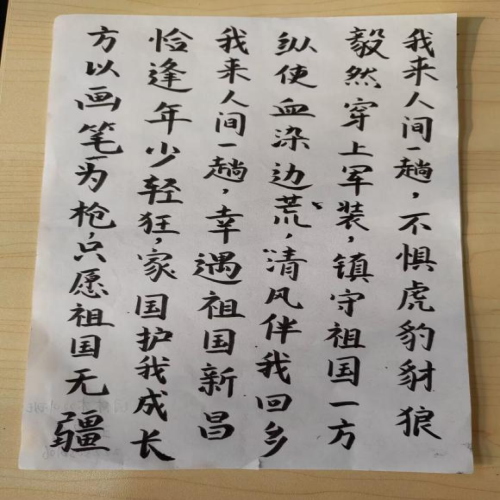 我来人间一趟，不惧虎豹豺狼
毅然穿上军装，镇守祖国一方
纵使血染边荒，清风伴我回乡
我来人间一趟，幸遇祖国新昌
恰逢年少轻狂，家国护我成长
方以画笔为枪，只愿祖国无疆